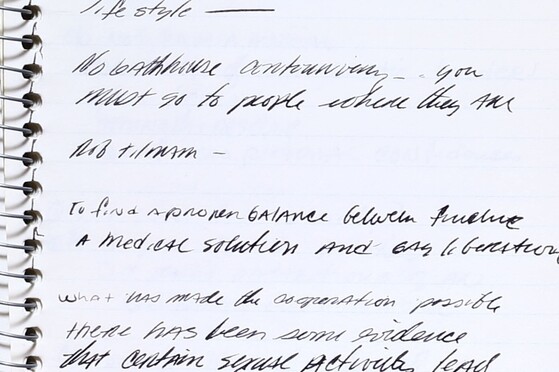 life style —
No bathhouse controversy - . you
must go to people where they are
Rob Tilman -
To find a proper balance between finding
A medical solution and gay liberation
what has made the cooperation possible
there has been some evidence
that certain sexual activities lead